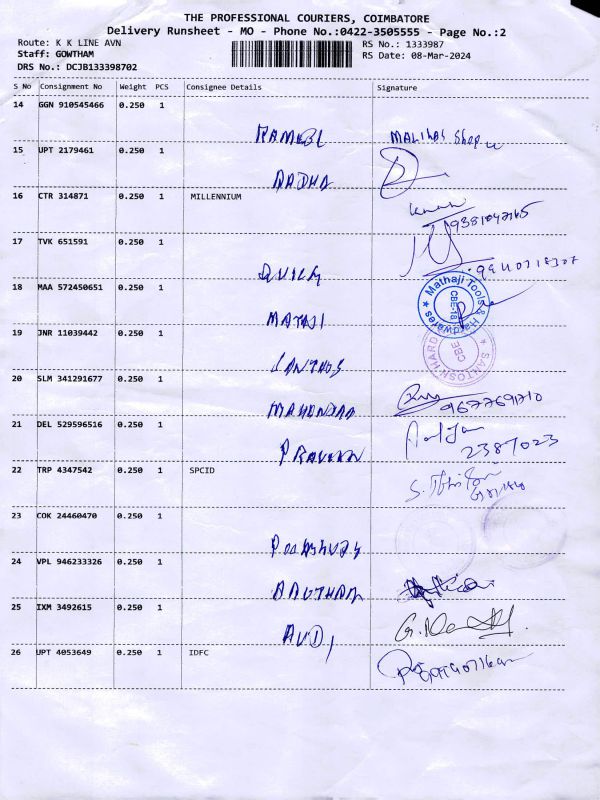 THE PROFESSIONAL COURIERS, COIMBATORE
Delivery Runsheet - MO - Phone No.:0422-3505555 - Page No.:2
Route: K K LINE AVN RS No.: 1333987
Staff: GOWTHAM RS Date: 08-Mar-2024
DRS No.: DCJB133398702
S No Consignment No Weight PCS Consignee Details Signature
14 GGN 910545466 0.250 1
RAMESL MALIHAS Shop
15 UPT 2179461 0.250 1
AADHA
16 CTR 314871 0.250 1 MILLENNIUM
9381047165
17 TVK 651591 0.250 1
9940718307
18 MAA 572450651 0.250 1 Mathaji Tools & Hardwares CBE-18
MATAJI
19 JNR 11039442 0.250 1 SANTOSH HARD CBE
SANTHOS
20 SLM 341291677 0.250 1
MAHENDRA 9677691710
21 DEL 529596516 0.250 1
PRAVEEN 2387023
22 TRP 4347542 0.250 1 SPCID
23 COK 24460470 0.250 1
24 VPL 946233326 0.250 1
GAUTHAM
25 IXM 3492615 0.250 1
AUDI
26 UPT 4053649 0.250 1 IDFC